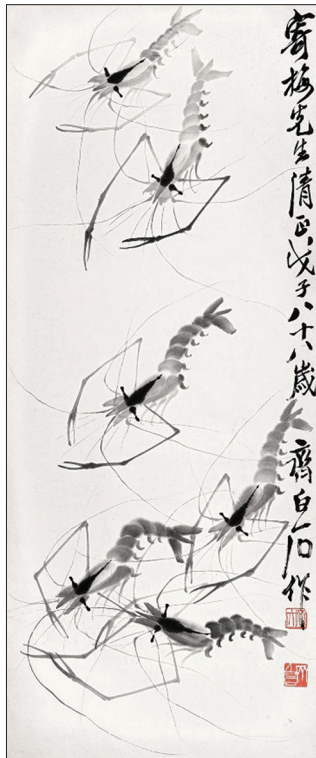 寄梅先生清正戊子八十八歲 齊白石作